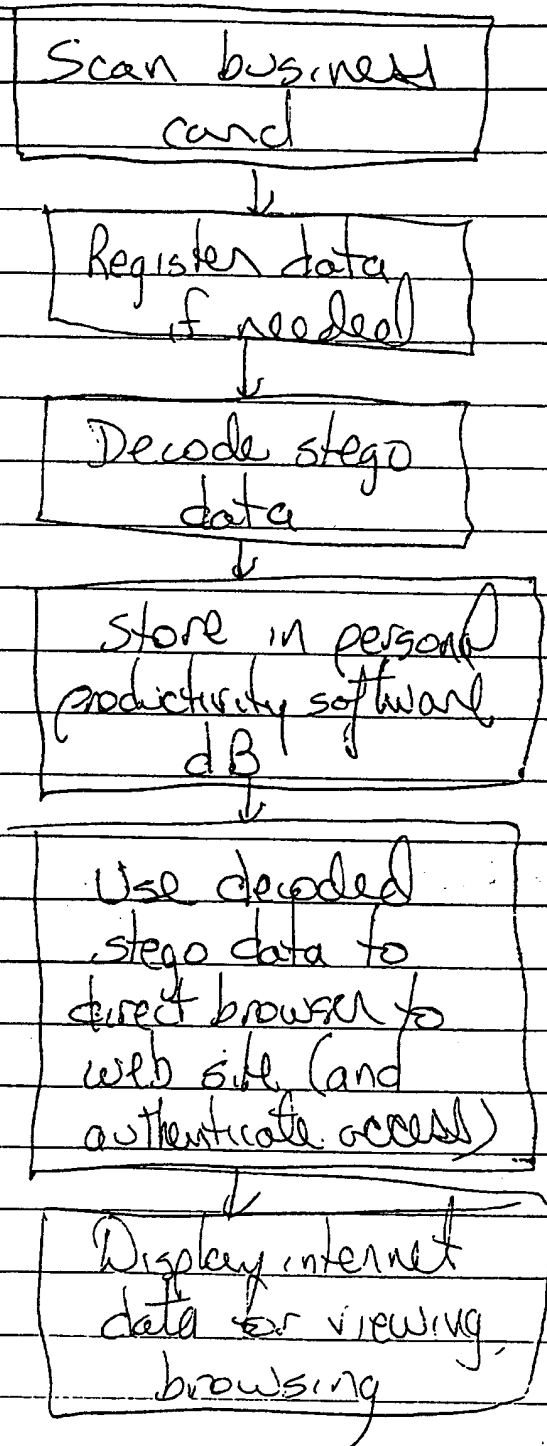 Scan business
card
Register data
if needed
Decode stego
data
Store in personal
productivity software
dB
Use decoded
stego data to
direct browser to
web site (and
authenticate access)
Display internet
data for viewing,
browsing